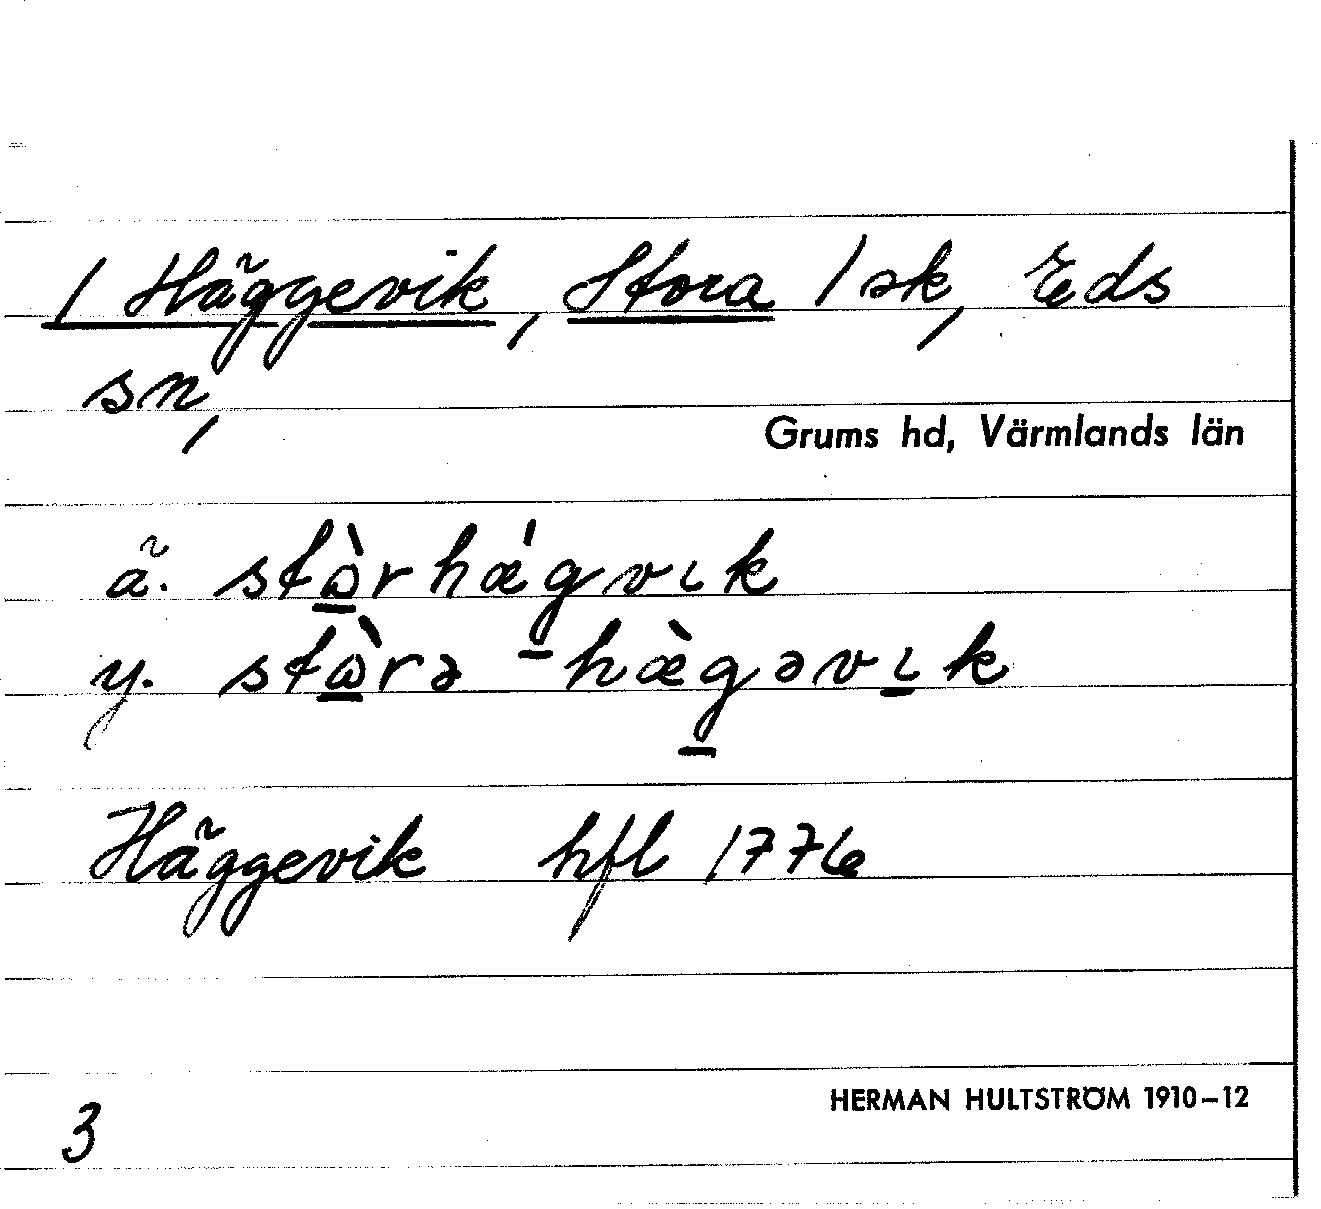 / Häggevik, Stora / sk, Eds
sn,
Grums hd, Värmlands län
ä. stὼrhǽgvιk
y. stὼrə - hæ̀gəvιk
Häggevik hfl 1776
HERMAN HULTSTRÖM 1910–12
3